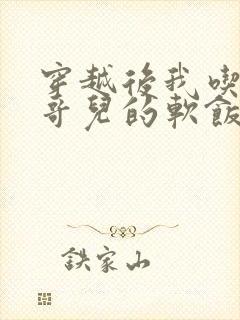 穿越後我喫
哥兒的軟飯
鉄家山